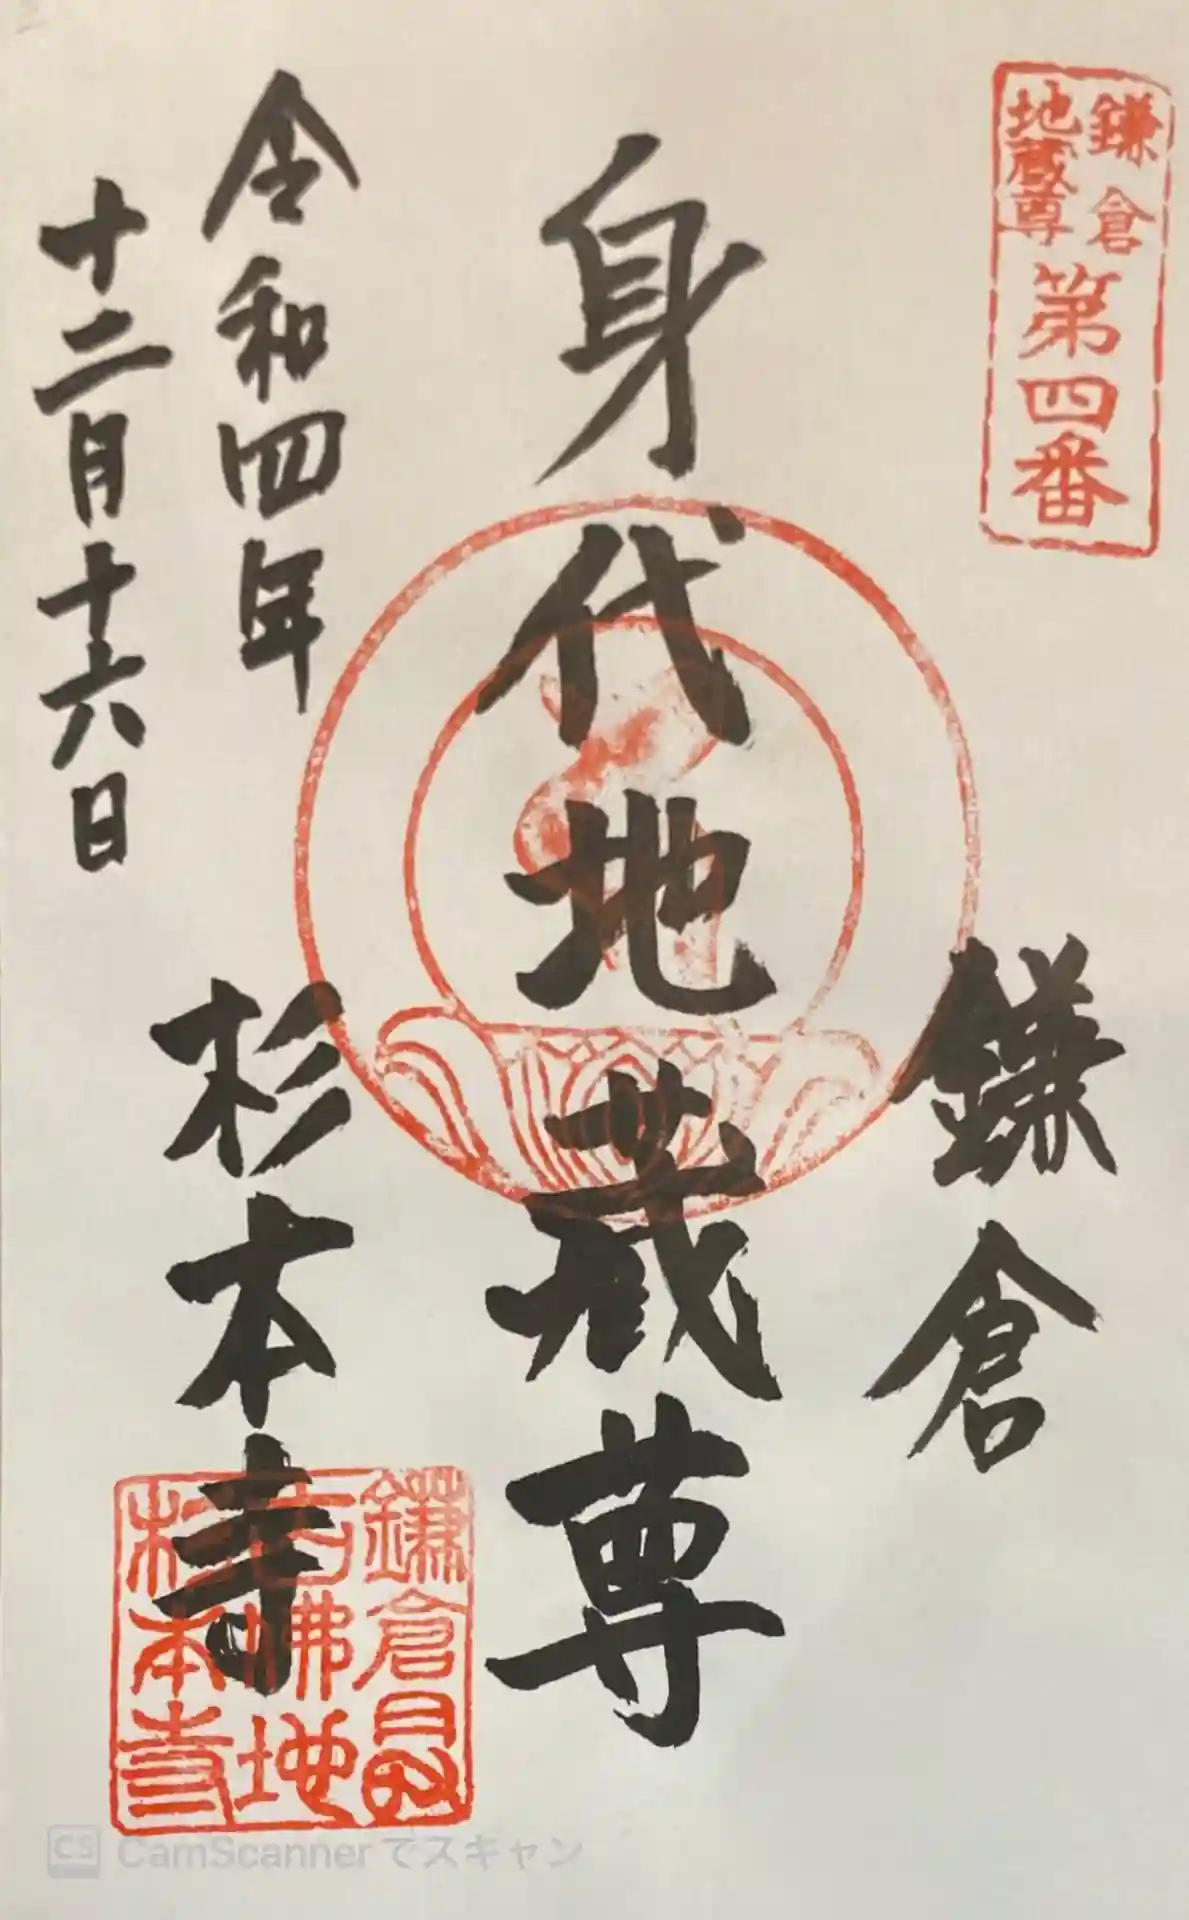 鎌倉
地蔵尊
第四番
鎌倉
身代地蔵尊
令和四年
十二月十六日
杉本寺
鎌倉最
佛地
杉本寺
CS CamScannerでスキャン